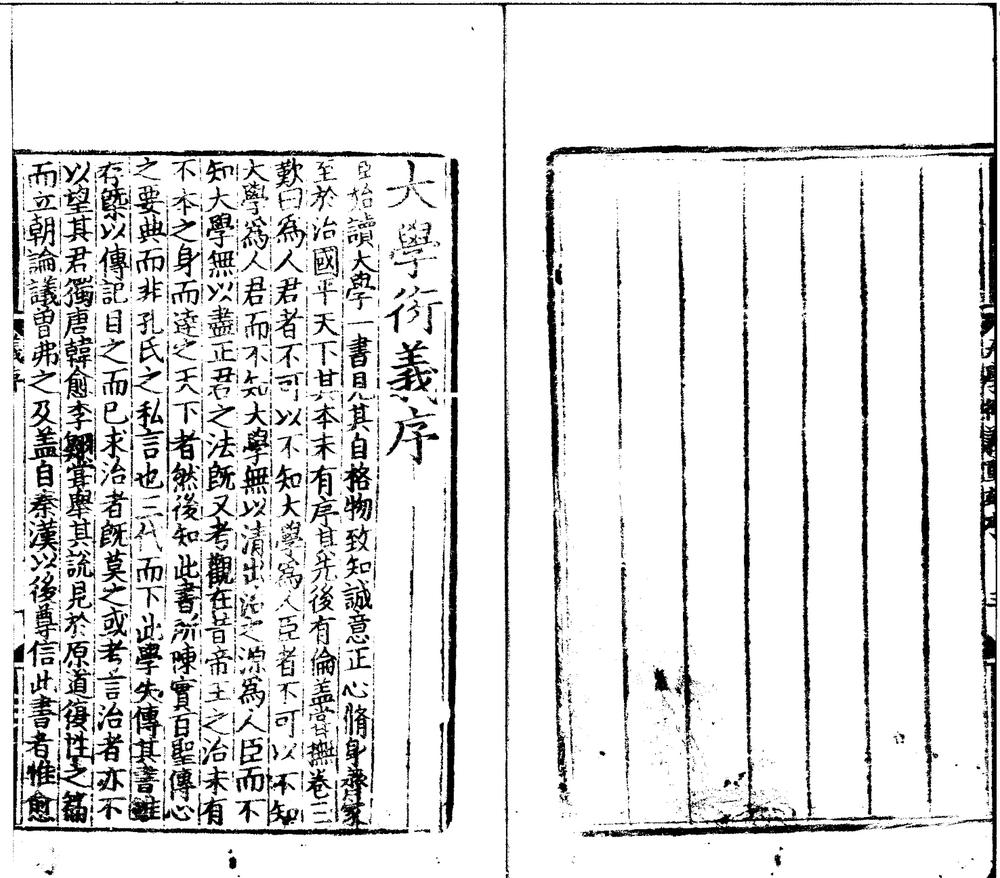 大學衍義序
臣始讀大學一書見其自格物致知誠意正心脩身齊家
至於治國平天下其本末有序其先後有倫盖甞撫卷三
歎曰爲人君者不可以不知大學爲人臣者不可以不知
大學爲人君而不知大學無以清出治之源爲人臣而不
知大學無以盡正君之法旣又考觀在昔帝王之治未有
不本之身而達之天下者然後知此書所陳實百聖傳心
之要典而非孔氏之私言也三代而下此學失傳其書雖
存槩以傳記目之而已求治者旣莫之或考言治者亦不
以望其君獨唐韓愈李翺甞舉其說見於原道復性之篇
而立朝論議曽弗之及盖自秦漢以後尊信此書者惟愈
義序